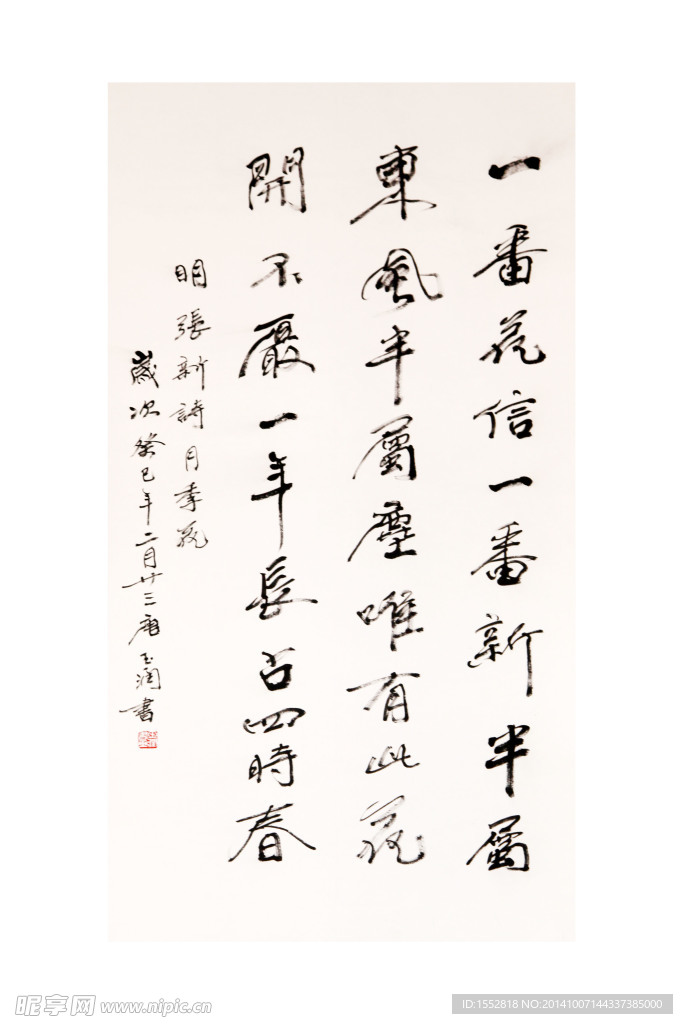 一番花信一番新半屬
東風半屬塵唯有此花
開不厭一年長占四時春
明張新詩月季花
歲次癸巳年二月廿三唐玉潤書
昵享网 www.nipic.cn
ID:1552818 NO:20141007144337385000